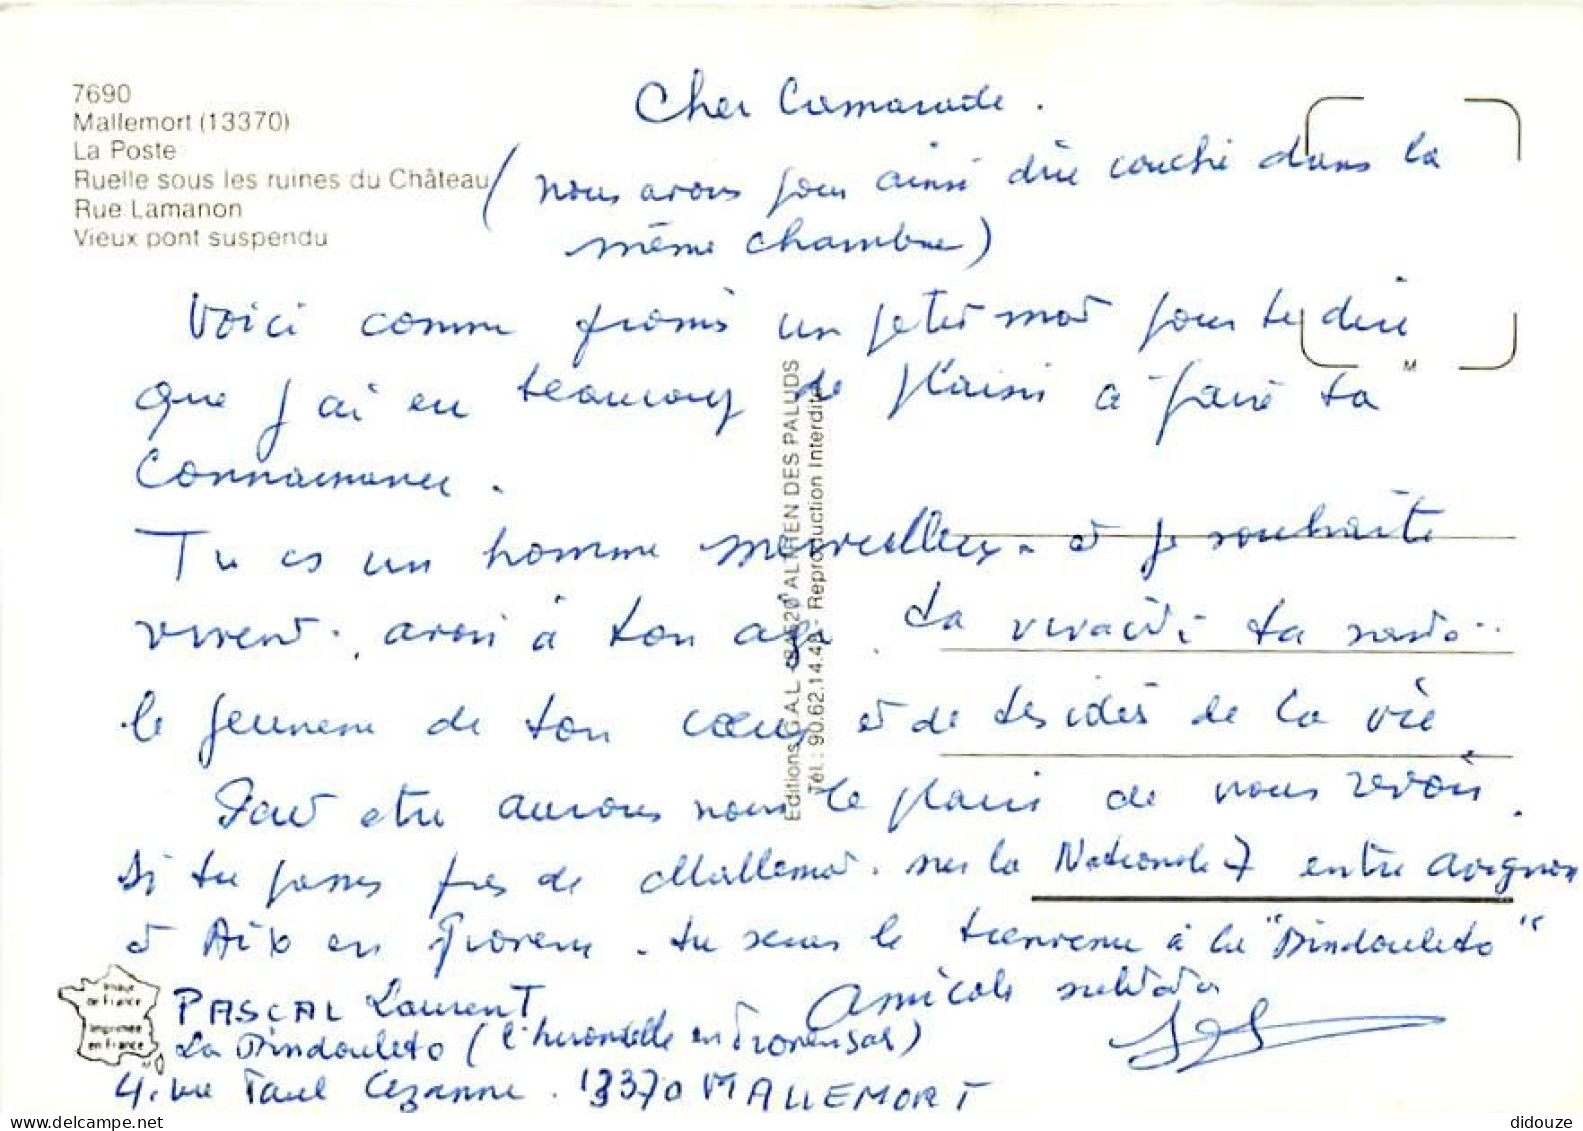 7690
Mallemort (13370)
La Poste
Ruelle sous les ruines du Château
Rue Lamanon
Vieux pont suspendu
Cher Camarade.
(nous avons pour ainsi dire couché dans la
même chambre)
Voici comme promis un petit mot pour te dire
que j'ai eu beaucoup de plaisir à faire ta
connaissance.
Tu es un homme merveilleux. et je souhaite
vivement, avoir à ton age. ta vivacité ta santé..
le jeunesse de ton coeur et de tes idées de la vie
Peut etre aurons nous le plaisir de nous revoir.
Si tu passes près de Mallemort. sur la Nationale 7 entre Avignon
et Aix en Provence. tu seras le bienvenu à la "Dindouleto"
Amicale
PASCAL Laurent
La Dindouleto (l'hirondelle en Provensal)
4. rue Paul Cezanne. 13370 MALLEMORT
Editions GAL - 84620 ALTHEN DES PALUDS
Tél.: 90.62.14.49 - Reproduction Interdite
M
Image
de France
Imprimée
en France
didouze